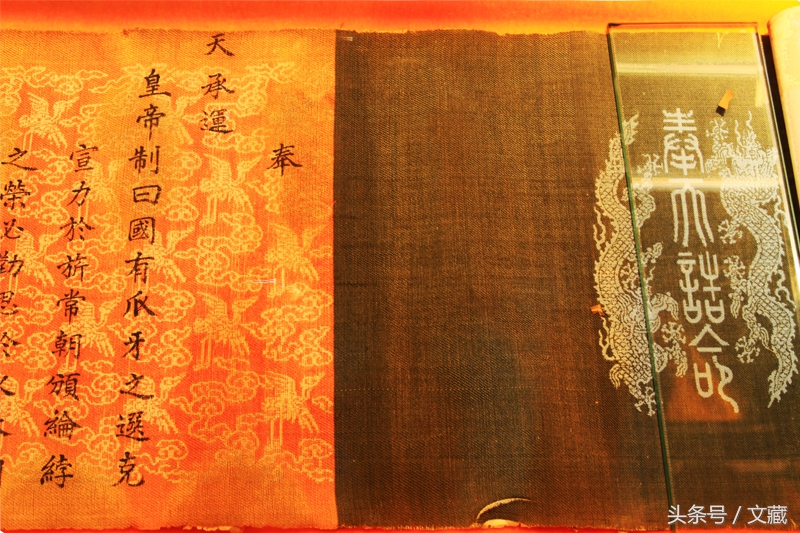 奉天誥命
奉
天承運
皇帝制曰國有爪牙之選克
宣力於旂常朝頒綸綍
之榮必勤思於
头条号 / 文藏